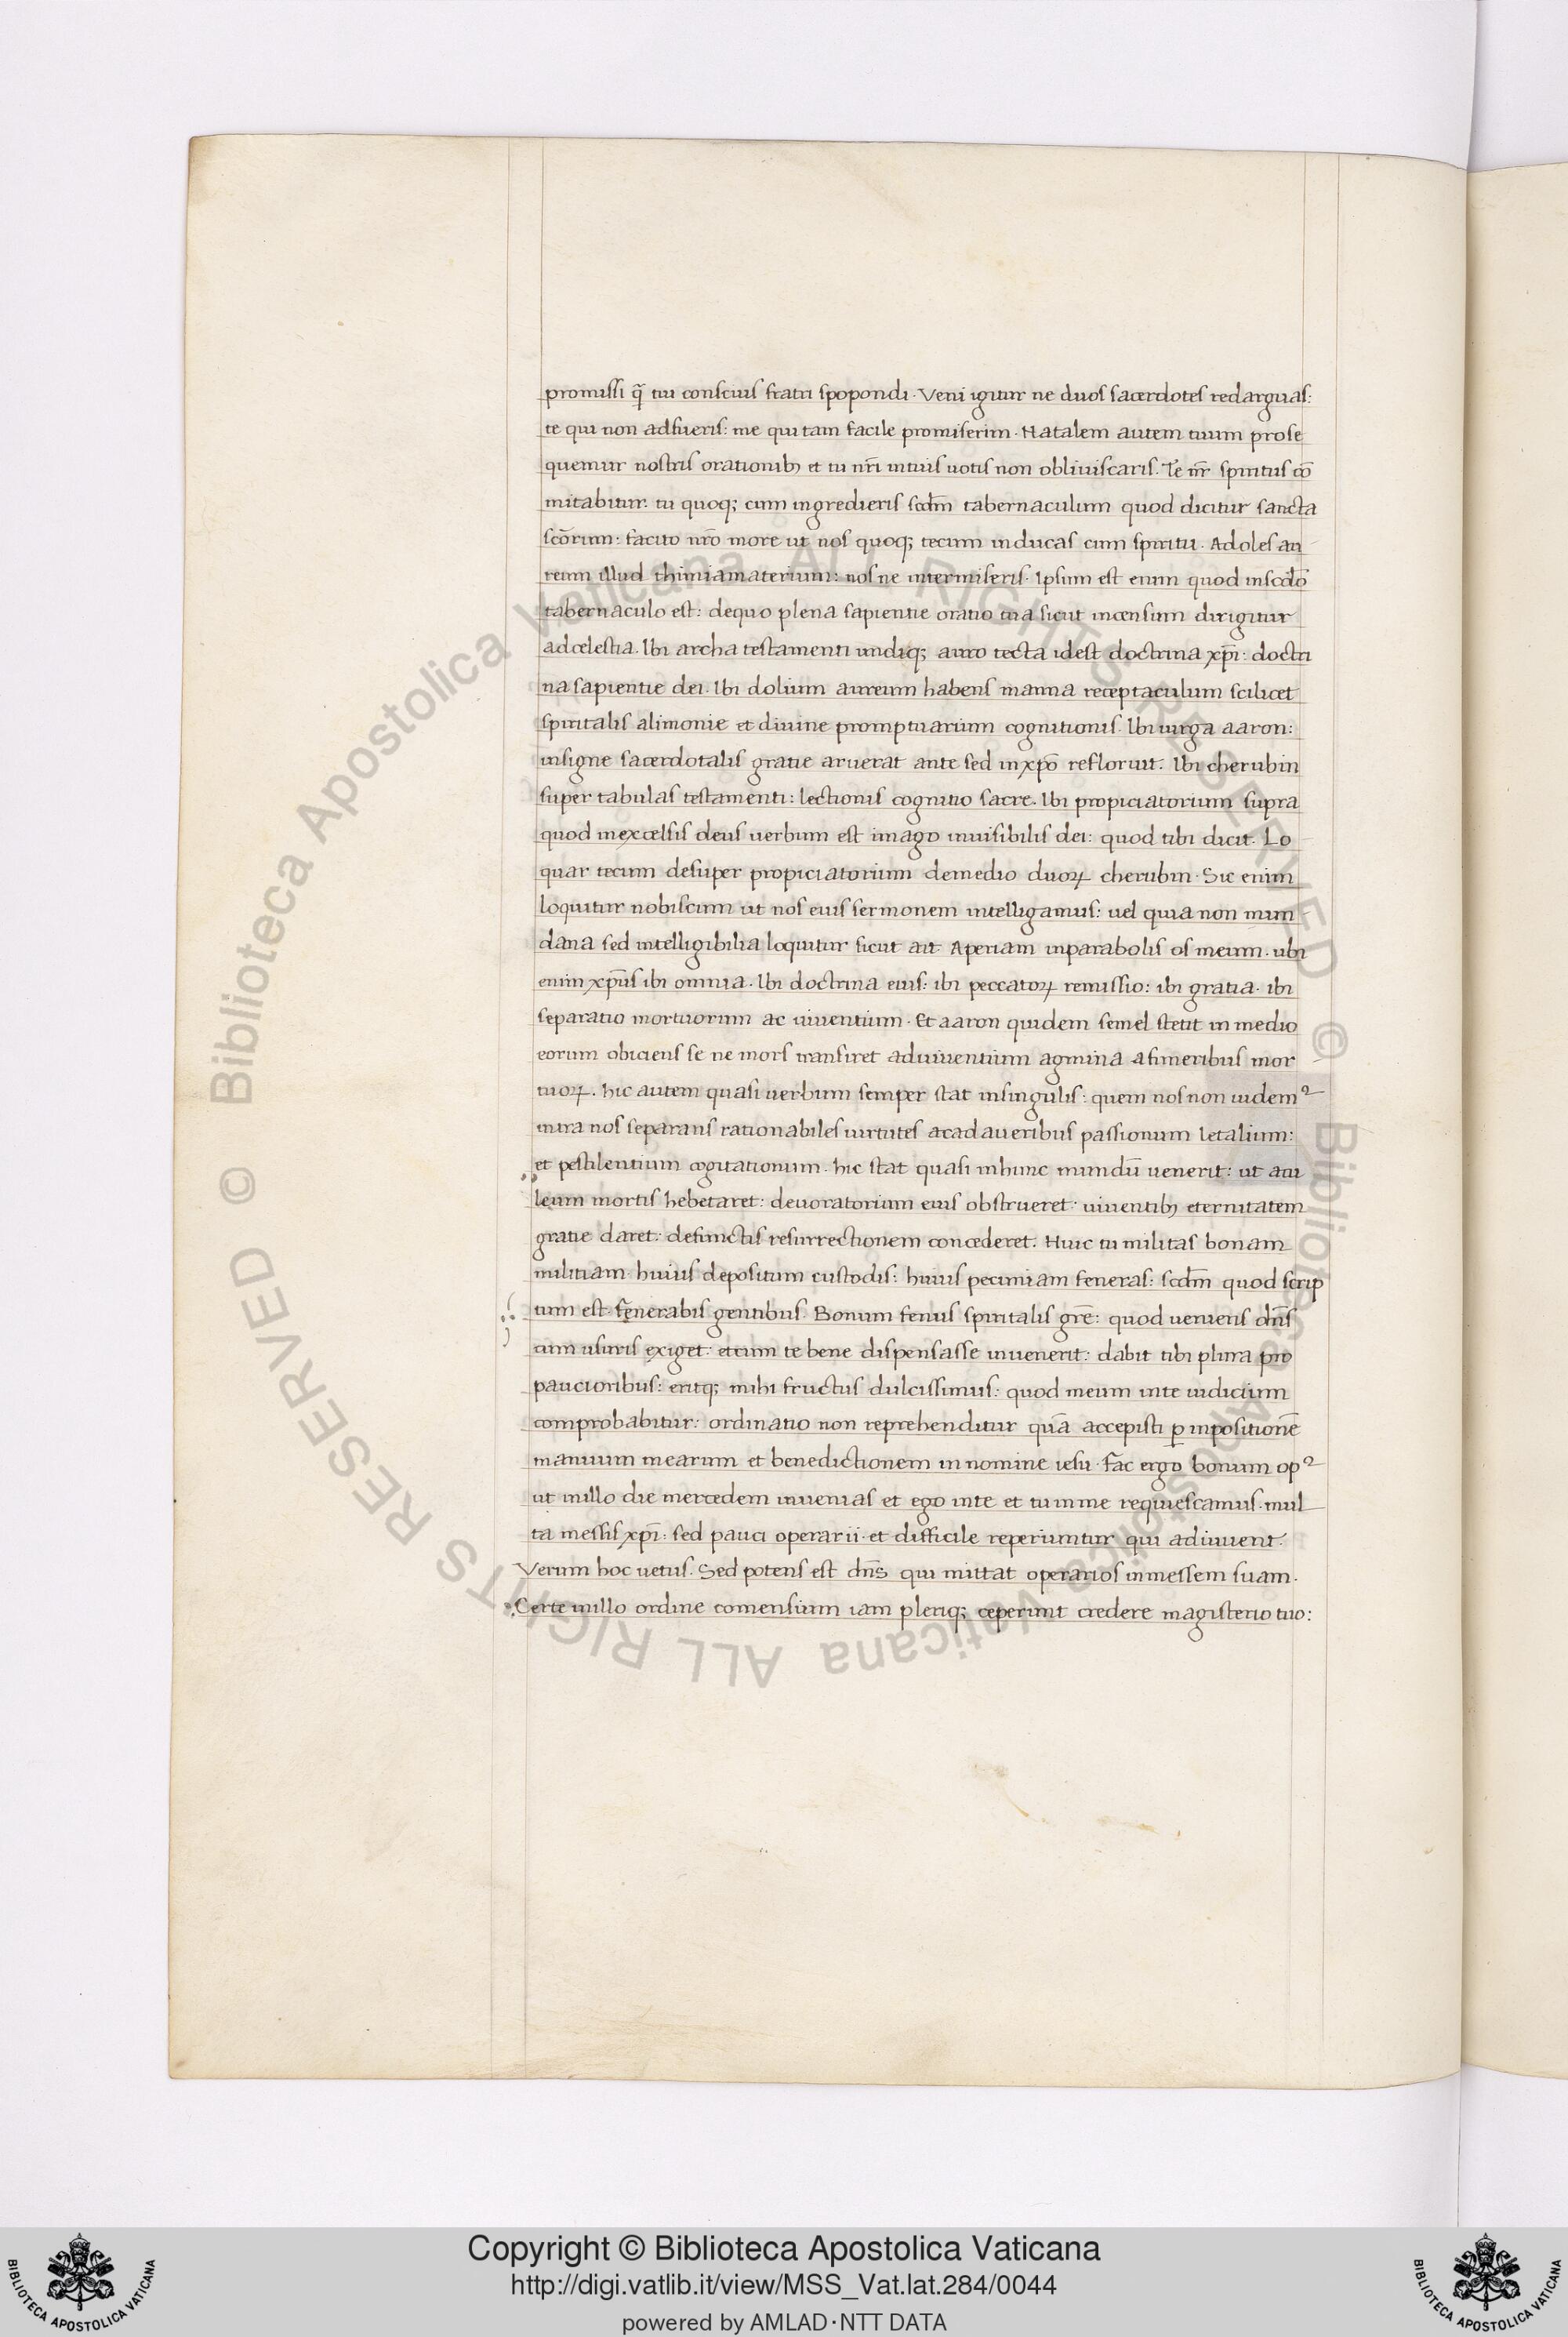 promissi q̃ tui conscius fratri spopondi. Veni igitur ne duos sacerdotes redarguas:
te qui non adfueris: me qui tam facile promiserim. Natalem autem tuum prose
quemur nostris orationib; et tu nr̃i in tuis uotis non obliuiscaris. Te nr̃ spiritus cō
mitabitur. tu quoq; cum ingredieris scdm̄ tabernaculum quod dicitur sancta
scōrum: facito nr̃o more ut nos quoq; tecum inducas cum spiritu. Adoles au
reum illud thimiamaterium: nos ne intermiseris. Ipsum est enim quod inscdō
tabernaculo est: dequo plena sapientie oratio tua sicut incensum dirigitur
adcelestia. Ibi archa testamenti undiq; auro tecta idest doctrina xp̄i: doctri
na sapientie dei. Ibi dolium aureum habens manna receptaculum scilicet
spiritalis alimonie et diuine promptuarium cognitionis. Ibi uirga aaron:
insigne sacerdotalis gratie aruerat ante sed inxp̄o refloruit. Ibi cherubin
super tabulas testamenti: lectionis cognitio sacre. Ibi propiciatorium supra
quod inexcelsis deus uerbum est imago inuisibilis dei: quod tibi dicit. Lo
quar tecum desuper propiciatorium demedio duoꝝ cherubin. Sic enim
loquitur nobiscum ut nos eius sermonem intelligamus: uel quia non mun
dana sed intelligibilia loquitur sicut ait Aperiam inparabolis os meum. ubi
enim xp̄us ibi omnia. Ibi doctrina eius: ibi peccatoꝝ remissio: ibi gratia. ibi
separatio mortuorum ac uiuentium. Et aaron quidem semel stetit in medio
eorum obiciens se ne mors transiret aduiuentium agmina afuneribus mor
tuoꝝ. hic autem quasi uerbum semper stat insingulis: quem nos non uidemꝰ
intra nos separans rationabiles uirtutes acadaueribus passionum letalium:
et pestilentium cogitationum. hic stat quasi inhunc mundū uenerit: ut acu
leum mortis hebetaret: deuoratorium eius obstrueret: uiuentib; eternitatem
gratie daret: defunctis resurrectionem concederet. Huic tu militas bonam
militiam. huius depositum custodis: huius pecuniam feneras: scdm̄ quod scrip
tum est. fenerabis gentibus. Bonum fenus spiritalis grē: quod ueniens dn̄s
cum usuris exiget: etcum te bene dispensasse inuenerit: dabit tibi plura pro
paucioribus: eritq; mihi fructus dulcissimus: quod meum inte iudicium
comprobabitur: ordinatio non reprehenditur quā accepisti ꝑ inpositionē
manuum mearum et benedictionem in nomine iesu. Fac ergo bonum opꝰ
ut inillo die mercedem inuenias et ego inte et tu inme requiescamus. mul
ta messis xp̄i: sed pauci operarii. et difficile reperiuntur qui adiuuent.
Verum hoc uetus. Sed potens est dn̄s qui mittat operarios inmessem suam.
Certe inillo ordine comensium iam pleriq; ceperunt credere magisterio tuo:
© Biblioteca Apostolica Vaticana ALL RIGHTS RESERVED © Biblioteca Apostolica Vaticana ALL RIGHTS RESERVED
Copyright © Biblioteca Apostolica Vaticana
http://digi.vatlib.it/view/MSS_Vat.lat.284/0044
powered by AMLAD·NTT DATA
BIBLIOTECA APOSTOLICA VATICANA
BIBLIOTECA APOSTOLICA VATICANA